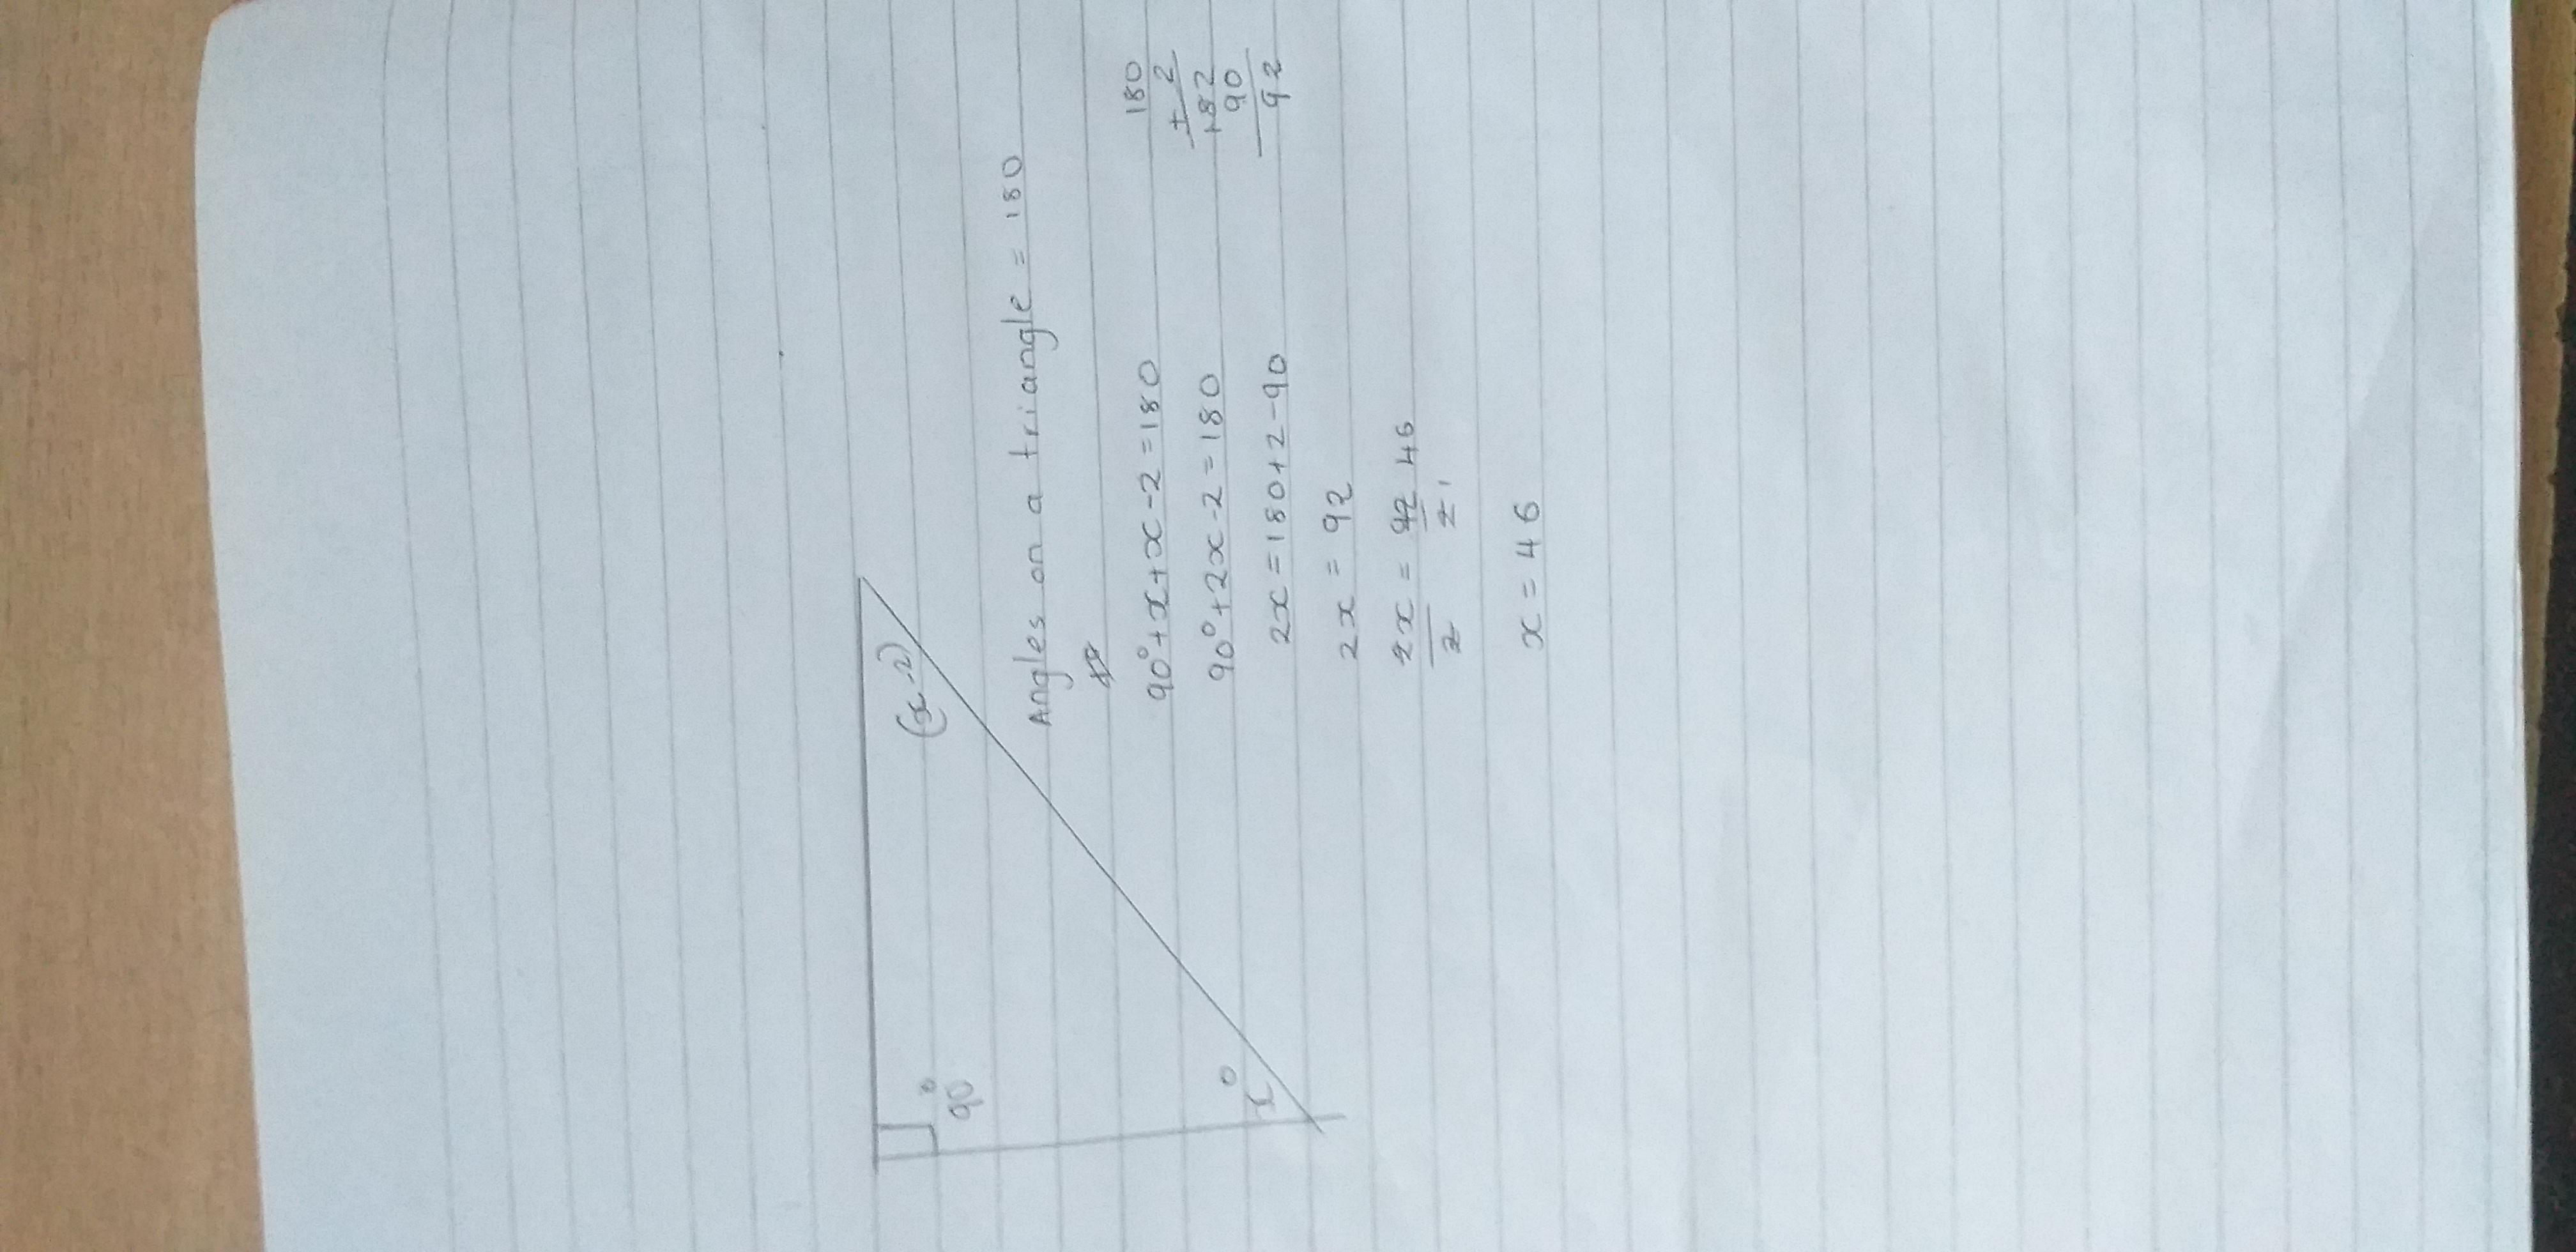 90°
(x-2)
x°
Angles on a triangle = 180
90°+x+x-2=180
90°+2x-2=180
2x=180+2-90
2x = 92
2x = 92 46
2 2 1
x = 46
180
+ 2
182
90
92